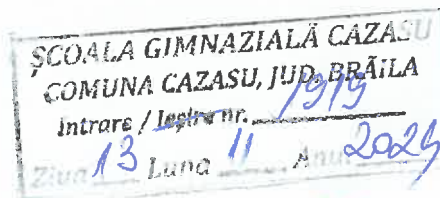 ȘCOALA GIMNAZIALĂ CAZASU
COMUNA CAZASU, JUD. BRĂILA
Intrare / Ieșire nr. 1919
Ziua 13 Luna 11 Anul 2024